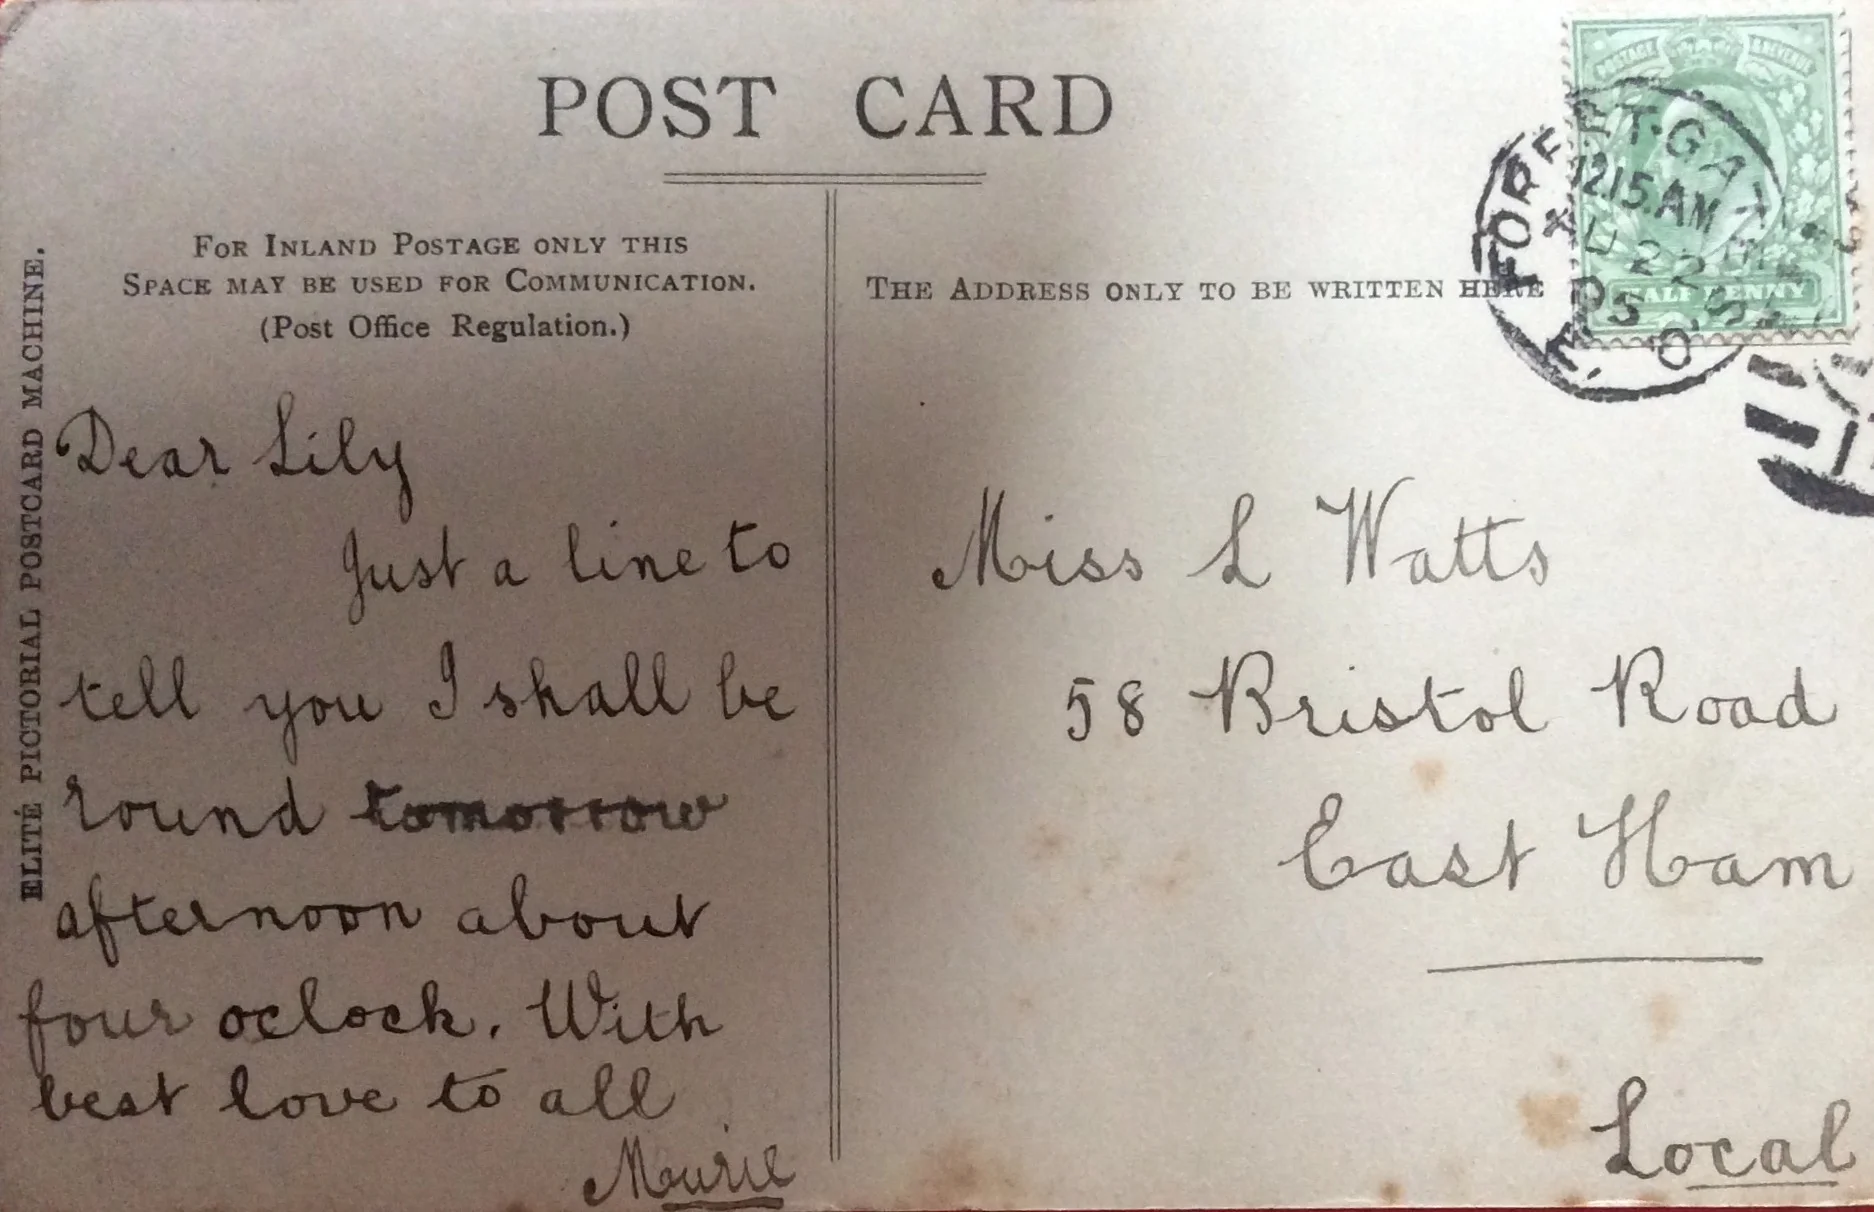 POST CARD
FOR INLAND POSTAGE ONLY THIS
SPACE MAY BE USED FOR COMMUNICATION.
(Post Office Regulation.)
THE ADDRESS ONLY TO BE WRITTEN HERE
ELITÉ PICTORIAL POSTCARD MACHINE.
POSTAGE REVENUE
HALFPENNY
FOREST-GATE
12.15.AM
AU 22
05
E.
Dear Lily
Just a line to
tell you I shall be
round tomorrow
afternoon about
four oclock. With
best love to all
Murie
Miss L Watts
58 Bristol Road
East Ham
Local